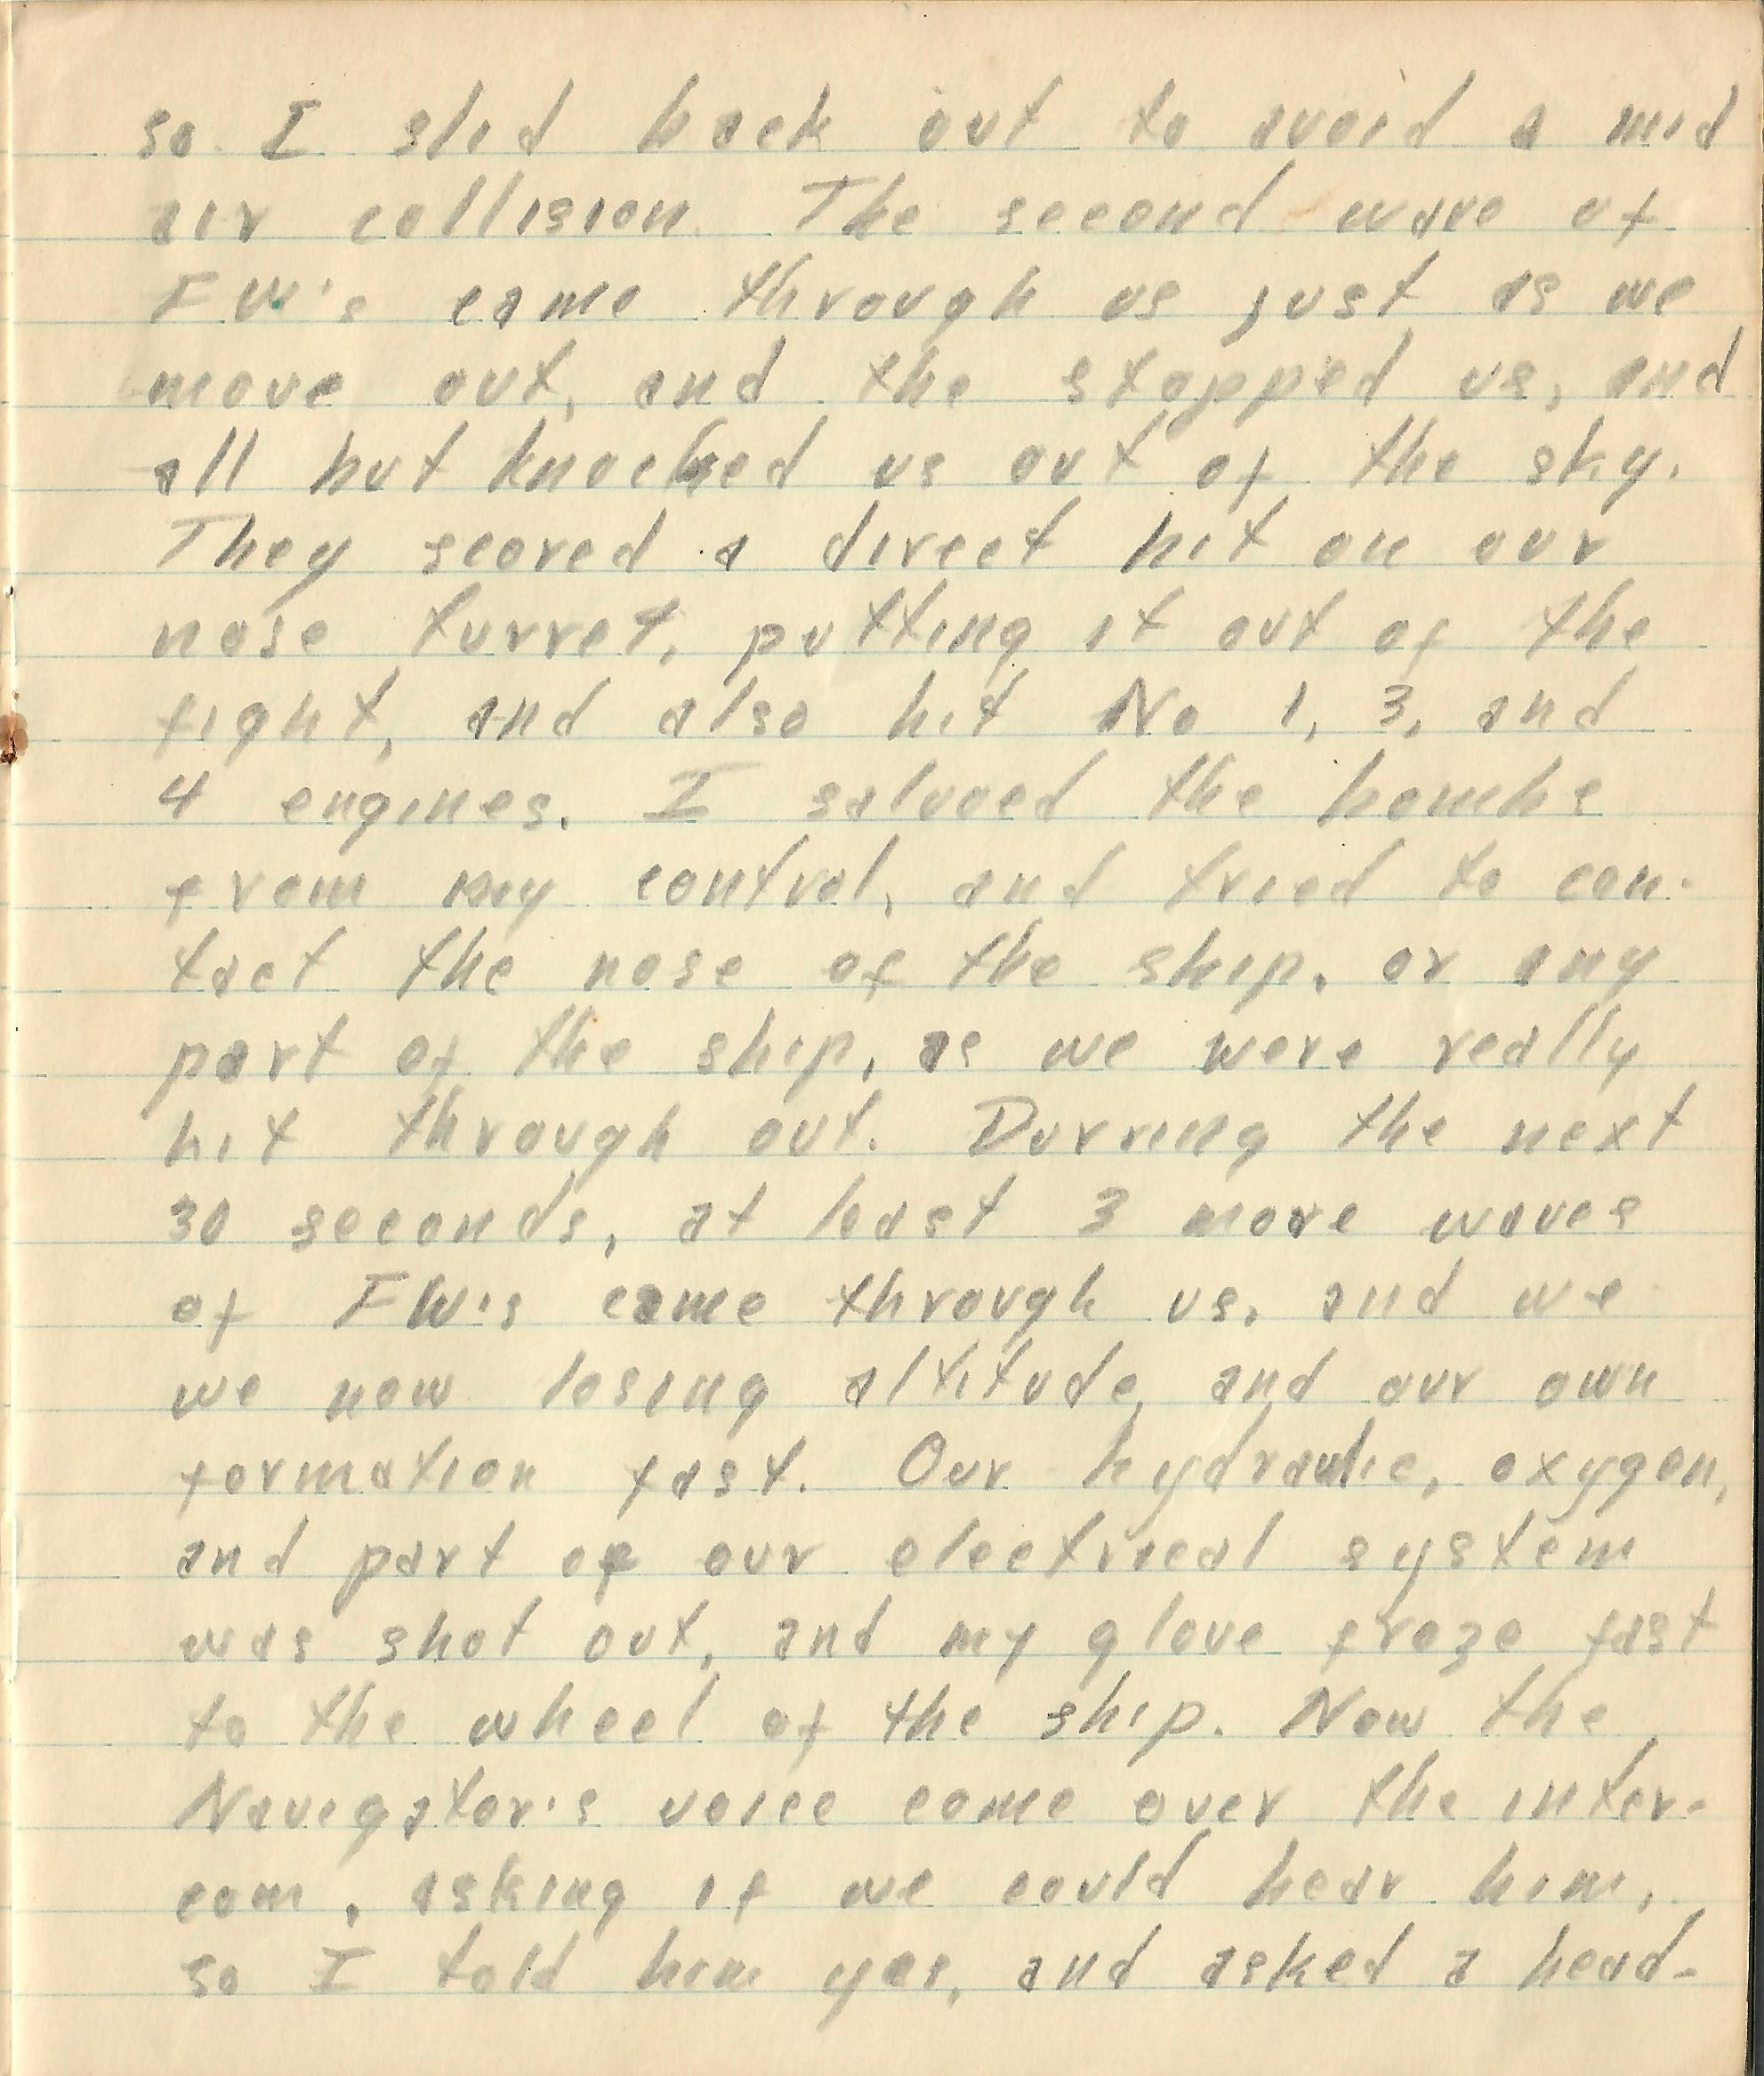 so I slid back out to avoid a mid
air collision. The second wave of
FW's came through us just as we
move out, and the stopped us, and
all but knocked us out of the sky.
They scored a direct hit on our
nose turret, putting it out of the
fight, and also hit No 1, 3, and
4 engines. I salvoed the bombs
from my control, and tried to con-
tact the nose of the ship, or any
part of the ship, as we were really
hit through out. Durring the next
30 seconds, at least 3 more waves
of FW's came through us, and we
we now losing altitude, and our own
formation fast. Our hydraulic, oxygen,
and part of our electrical system
was shot out, and my glove froze fast
to the wheel of the ship. Now the
Navigator's voice come over the inter-
com, asking if we could hear him,
so I told him yes, and asked a head-